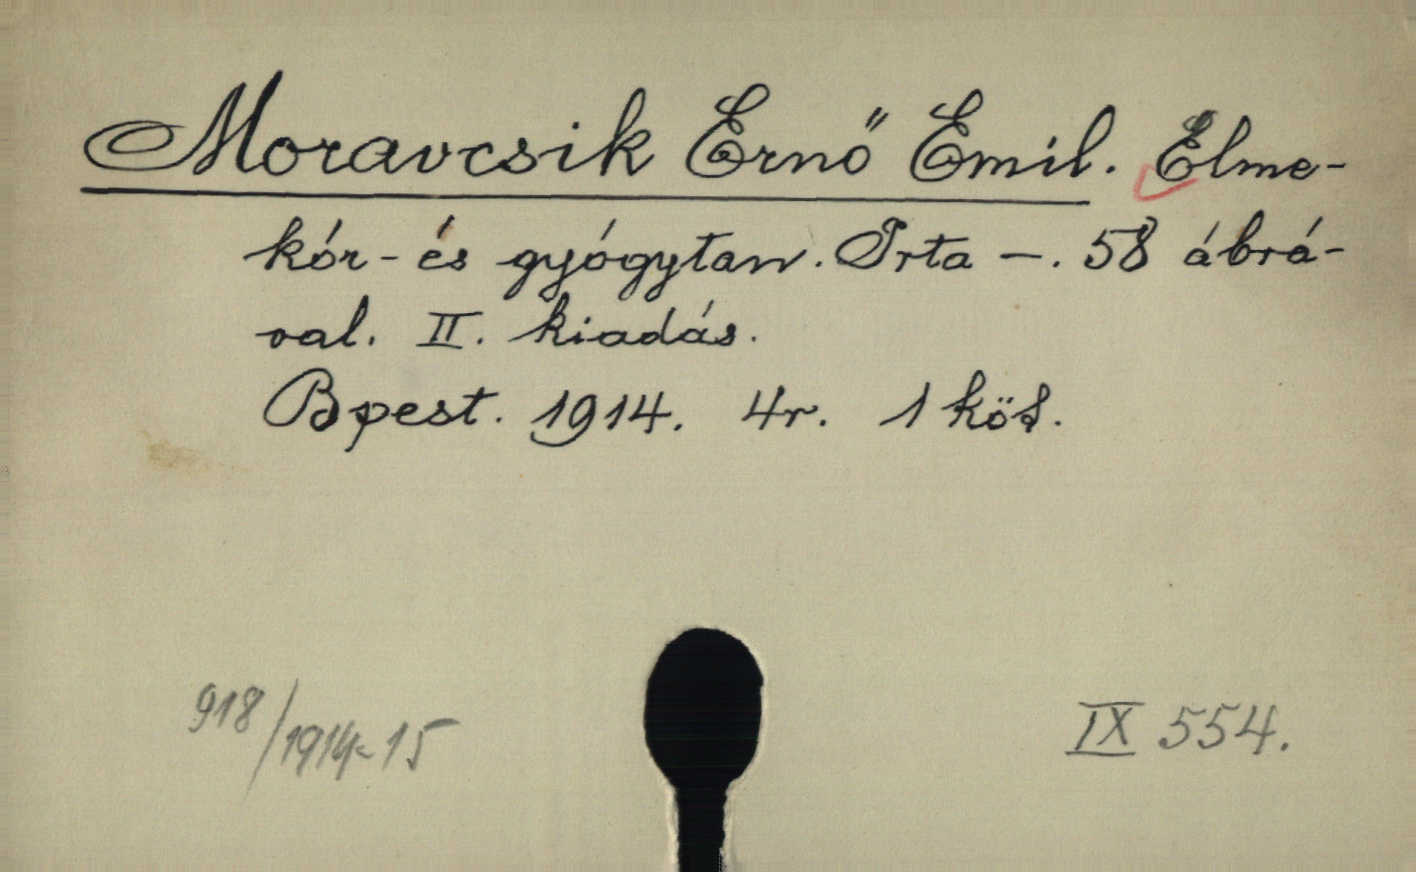 Moravcsik Ernő Emil. Elme-
kór- és gyógytan. Irta —. 58 ábrá-
val. II. kiadás.
Bpest. 1914. 4r. 1 köt.
918/1914-15
IX 554.